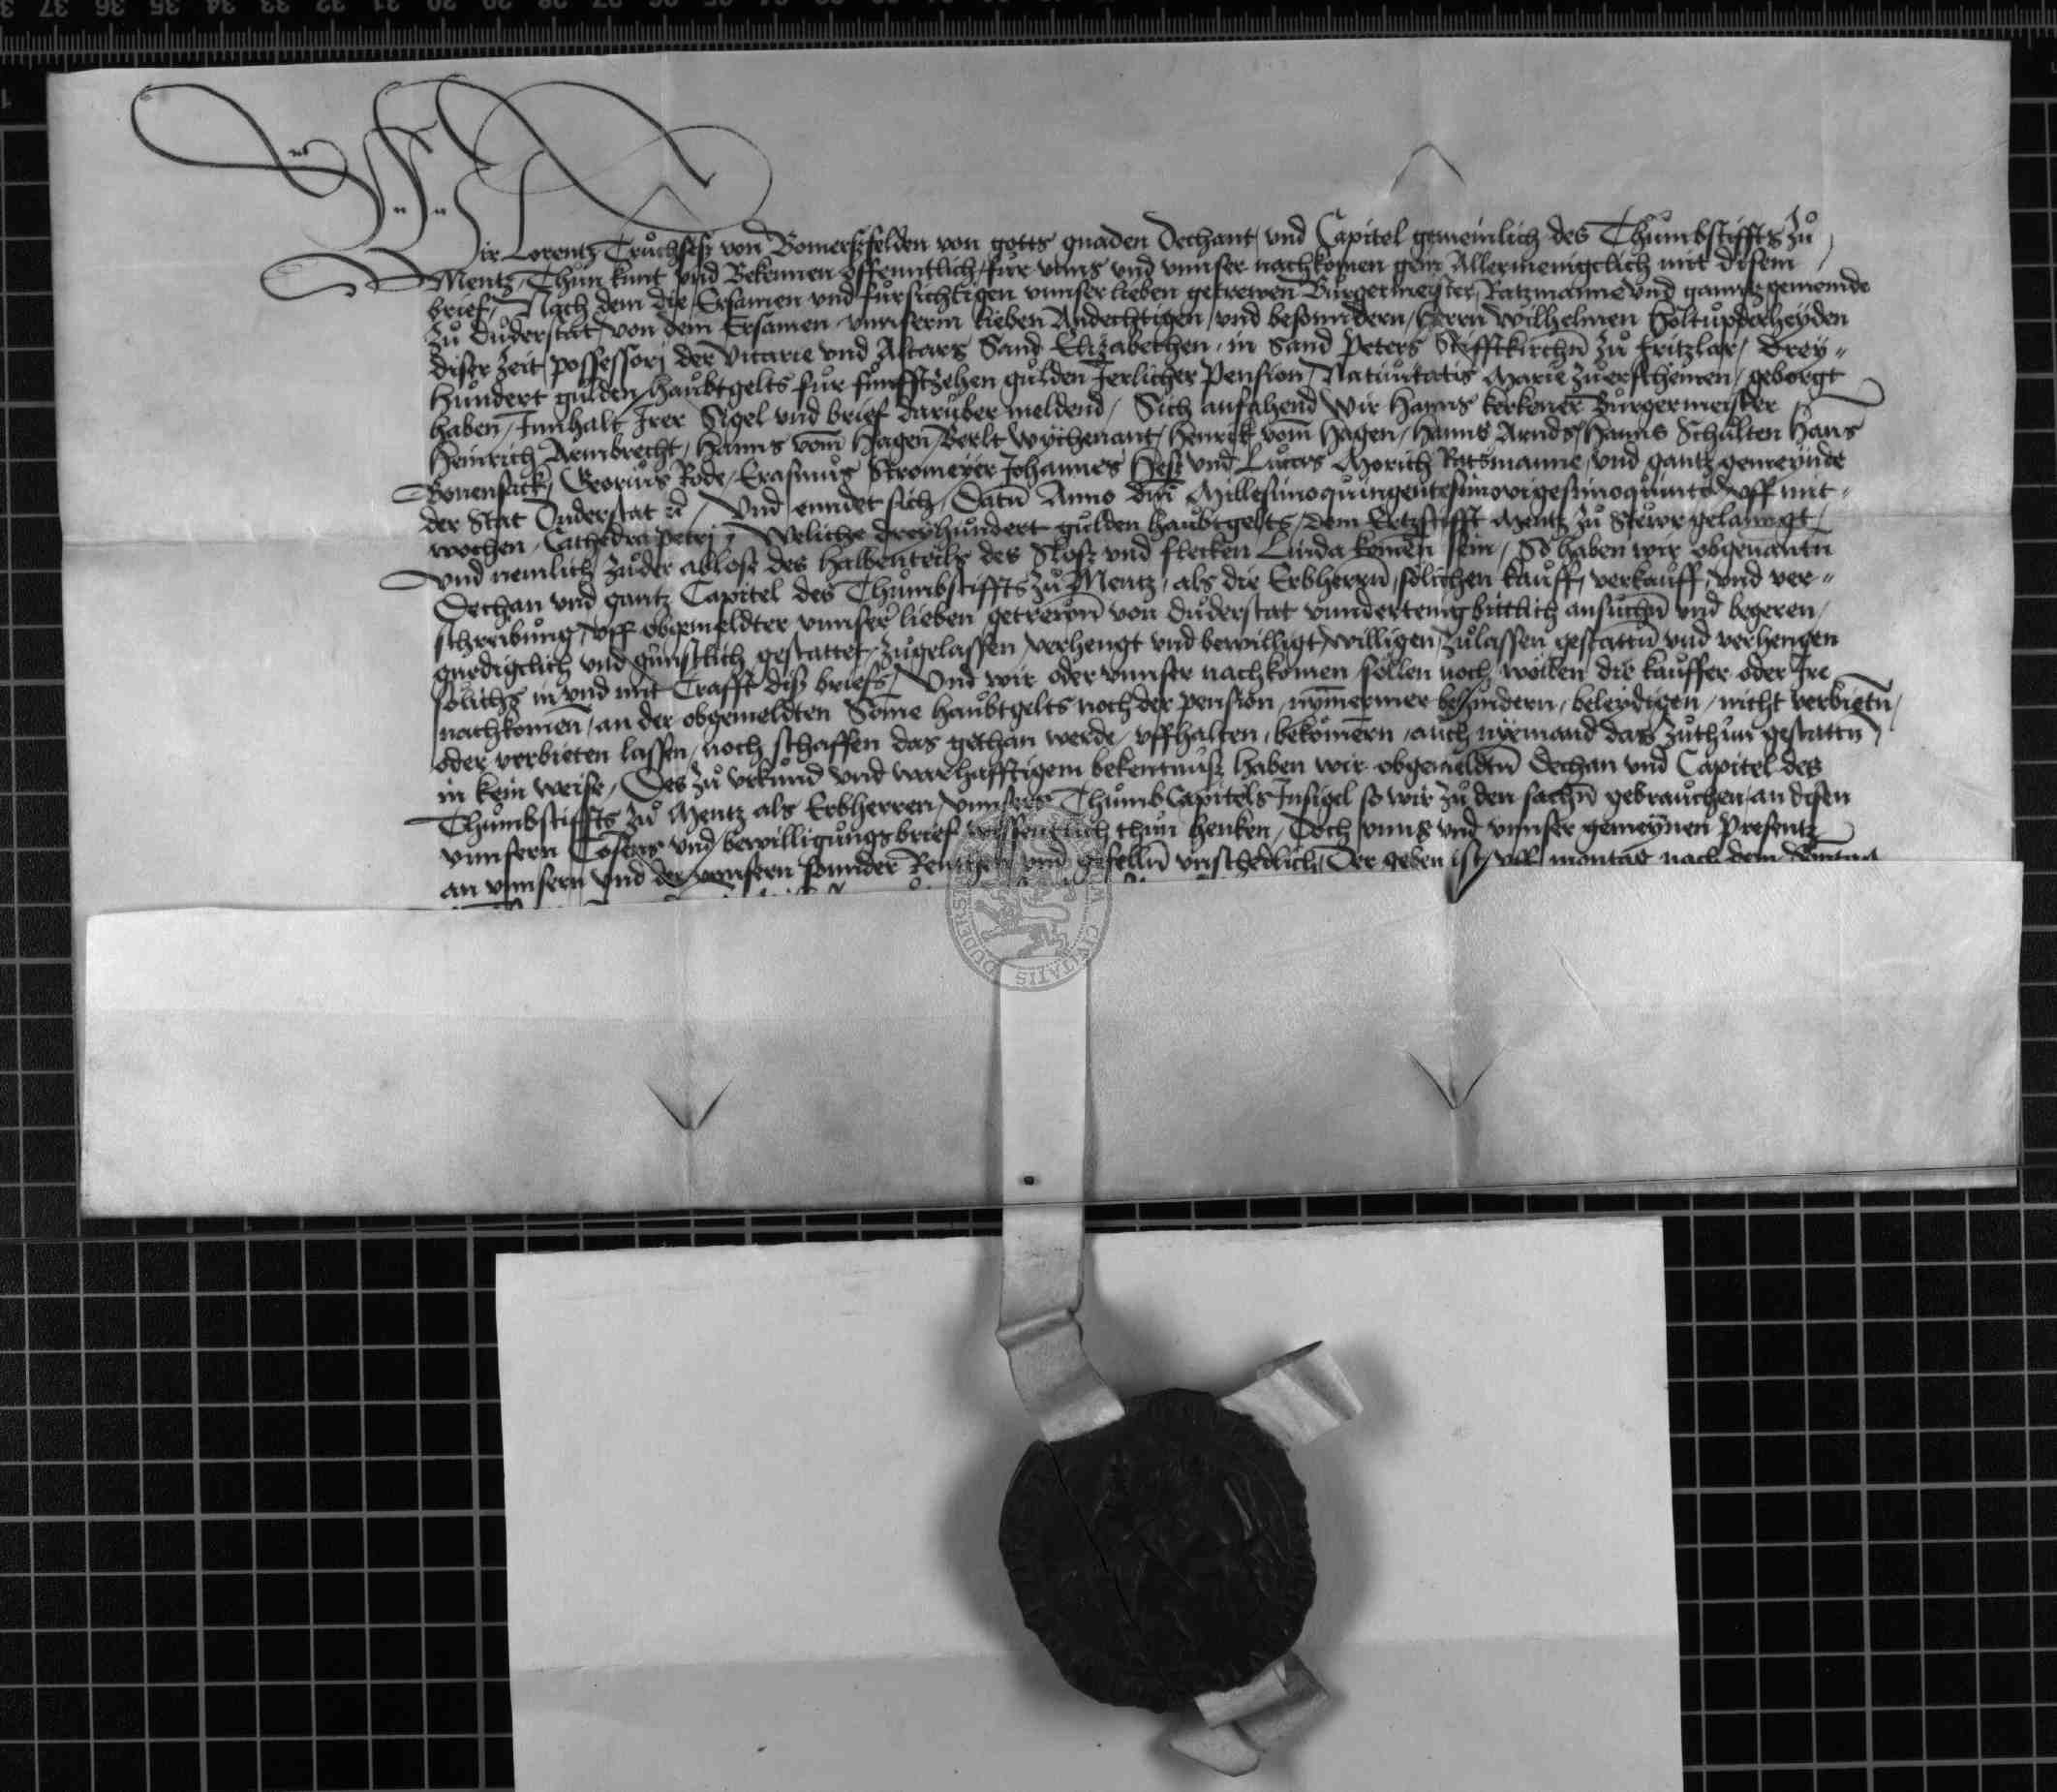 Wir Lorentz Truchseß von Bomerßfelden von gotts gnaden Dechant, und Capitel gemeinlich des Thumbstiffts zů
Mentz, Thun kunt und Bekennen offenntlich, fur unns und unnser nachkomen gein Allermeniglich mit disem
brief, Nach dem die Ersamen und fursichtigen unnser lieben getrewen Burgermeister, Ratzmanne und ganntz gemeinde
zů Důderstat, von dem Ersamen unnserm lieben Andechtigen, und besonndern, herrn Wilhelmen Holtupderheyden
diser zeit, possessorj der Vicarie und Altars Sand Elizabethen, in Sand Peters Stifftkirchn̄ zů Fritzlar, drey-
hundert gulden, haubtgelts fur funfftzehen gulden Jerlicher Pension, Natiuitatis Marie zuerscheinen, geborgt
haben, Innhalt Irer Sigel und brief daruber meldend, Sich anfahend Wir Hanns kerkener Burgermeister
Heinrich Armbrecht, Hanns vom Hagen, Berlt Wychenant, Henrick vom Hagen, Hanns Arnds, Hanns Schulten Hans
Bonensack, Georius Rode, Erasmus Stromeyer Johannes Heß und Lucas Morich Ratsmanne, und gantz gemeynde
der Stat Duderstat ꝛc̄, Und enndet sich, Datū Anno dn̄i Millesimoquingentesimovigesimoquinto uff mit-
wochen, Cathedra petri, Weliche dreyhundert gulden haubtgelts, dem Ertzstifft Mentz zů Stewr gelanngt,
und nemlich zůder ablose des halbenteils des Sloß und flecken Linda komen sein, So haben wir obgenantn̄
Dechan und gantz Capitel des Thumbstiffts zů Mentz, als die Erbherrn̄, sölichen kauff, verkauff, und ver-
schreibung, uff obgemeldter unnser lieben getrewn̄ von Duderstat unndertenig bittlich ansuchn̄ und begeren,
gnedigclich und gunstlich gestattet, zugelassen, verhengt und bewilligt, willigen, zulassen gestattn̄ und verhengen
solichs in und mit Crafft diß briefs, Und wir oder unnser nachkomen sollen noch wollen die kauffer oder Ire
nachkomen, an der obgemeldten Some haubtgelts noch der pension, nymermer behindern, beleydigen, nicht verbietn̄,
oder verbieten lassen, noch schaffen das gethan werde, uffhalten, bekomern, auch nyemand das zuthun gestattn̄
in kein weise, Des zů urkund und warhafftigem bekentnuß haben wir obgemeldtn̄ Dechan und Capitel des
Thumbstiffts zů Mentz als Erbherren, unnsers ThumbCapitels Insigel so wir zů den sachn̄ gebrauchen, an disen
unnsern Consens und bewilligungsbrief wissentlich thun henken, Doch unns und unnser gemeynen Presentz
an unnsern und der unnsern sonnder Renthen und gefelln̄ unschedlich, Der geben ist, uff montag nach dem Sontag
DUDERST CIVITATIS